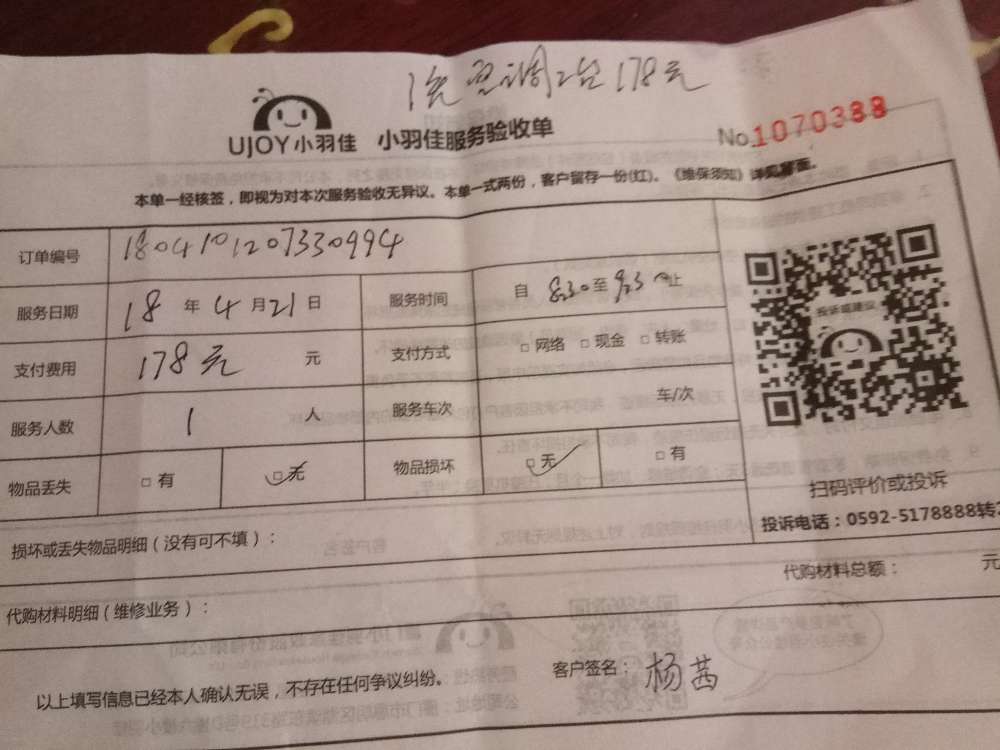 洗空调2台178元
UJOY小羽佳 小羽佳服务验收单
No.1070388
本单一经核签，即视为对本次服务验收无异议。本单一式两份，客户留存一份(红)。《维保须知》详见背面。
订单编号 1804101207330994
服务日期 18 年 4 月 21 日 服务时间 自 8:30 至 9:23 止
投诉或建议
支付费用 178元 元 支付方式 □ 网络 □ 现金 □ 转账
服务人数 1 人 服务车次 车/次
物品丢失 □ 有 □ 无 物品损坏 □ 无 □ 有
扫码评价或投诉
投诉电话：0592-5178888转2
损坏或丢失物品明细（没有可不填）：
代购材料总额： 元
代购材料明细（维修业务）：
以上填写信息已经本人确认无误，不存在任何争议纠纷。 客户签名： 杨茜